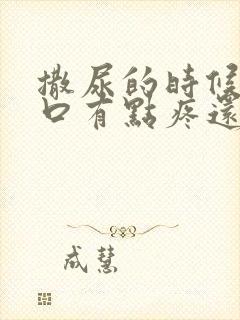 撒尿的時候
口有點疼還
成慧